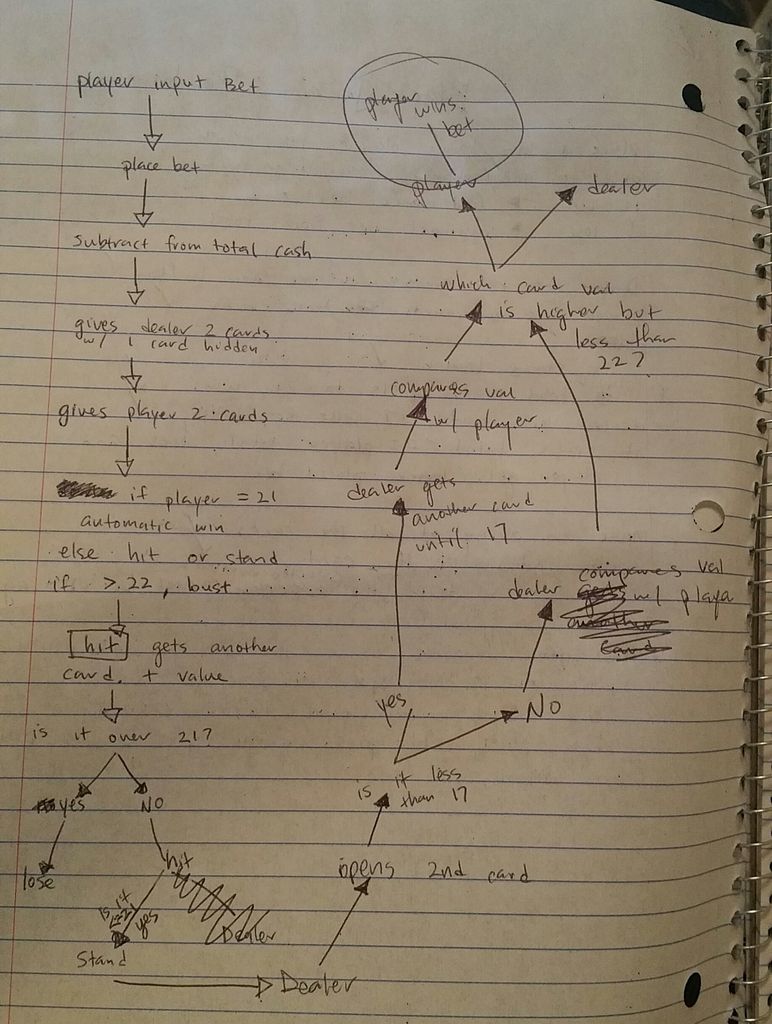 player input Bet
place bet
subtract from total cash
gives dealer 2 cards
w/ 1 card hidden
gives player 2 cards
if player = 21
automatic win
else hit or stand
if > 22, bust
hit gets another
card. + value
is it over 21?
yes NO
lose
hit
is it
yes
Dealer
Stand
Dealer
opens 2nd card
is it less
than 17
yes
NO
dealer compares val
w/ playa
another
card
dealer gets
another card
until 17
compares val
w/ player
which card val
is higher but
less than
22?
player
dealer
player
wins
bet